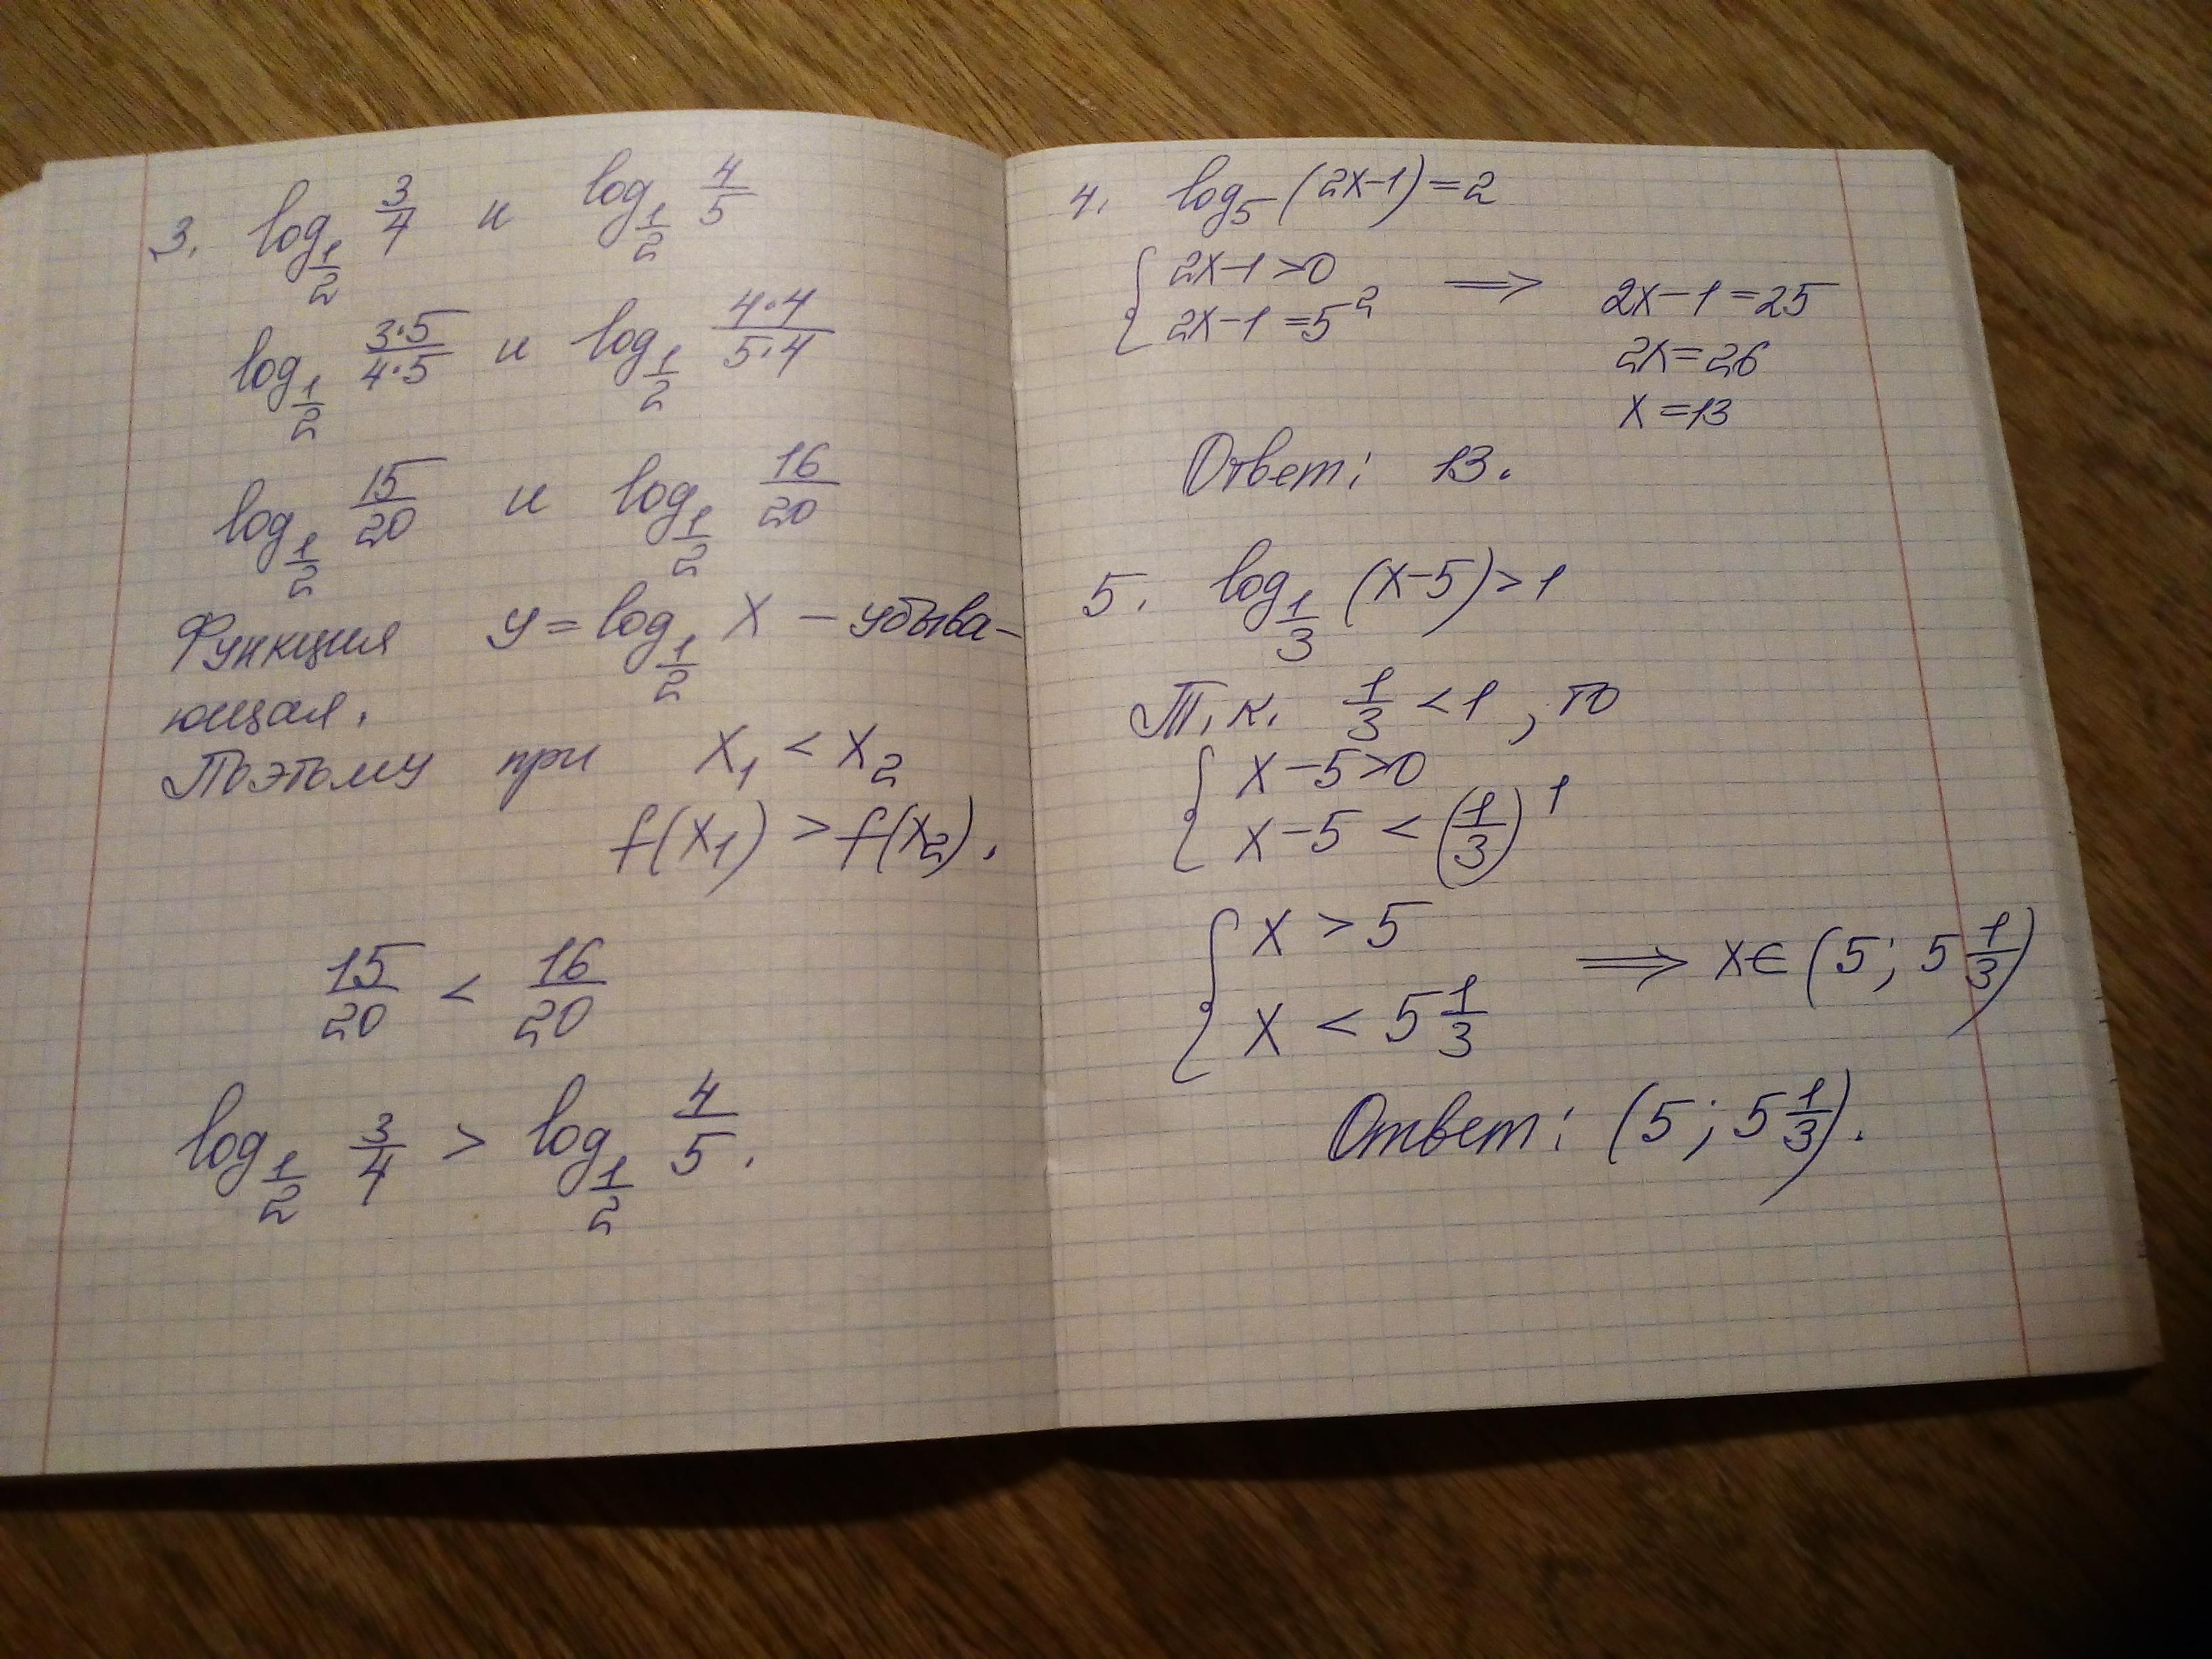 3. log_{1/2} 3/4 и log_{1/2} 4/5
log_{1/2} (3·5)/(4·5) и log_{1/2} (4·4)/(5·4)
log_{1/2} 15/20 и log_{1/2} 16/20
Функция y = log_{1/2} x – убыва-
ющая.
Поэтому при x₁ < x₂
f(x₁) > f(x₂).
15/20 < 16/20
log_{1/2} 3/4 > log_{1/2} 4/5.
4. log₅ (2x-1) = 2
{ 2x-1 > 0
2x-1 = 5² ⟹ 2x-1 = 25
2x = 26
x = 13
Ответ: 13.
5. log_{1/3} (x-5) > 1
Т.к. 1/3 < 1, то
{ x-5 > 0
x-5 < (1/3)¹
{ x > 5
x < 5 1/3 ⟹ x ∈ (5; 5 1/3)
Ответ: (5; 5 1/3).